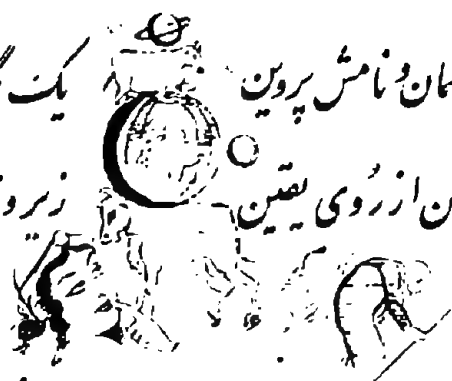 و نامش پروین یک
از رُوی یقین زیر و